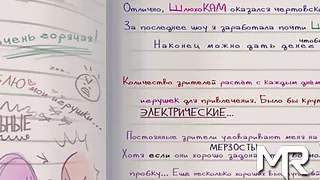 чень горячая!
Отлично, ШлюхоКАМ оказался чертовск
За последнее шоу я заработала почти
чтобы
Наконец можно дать денег
Количество зрителей растёт с каждым днём
игрушек для привлечения. Было бы крут
ЭЛЕКТРИЧЕСКИЕ...
Постоянные зрители уговаривают меня на
МЕРЗОСТЬ
Хотя если они хорошо задона
пробку... Ещё несколько хороших выступ
MR